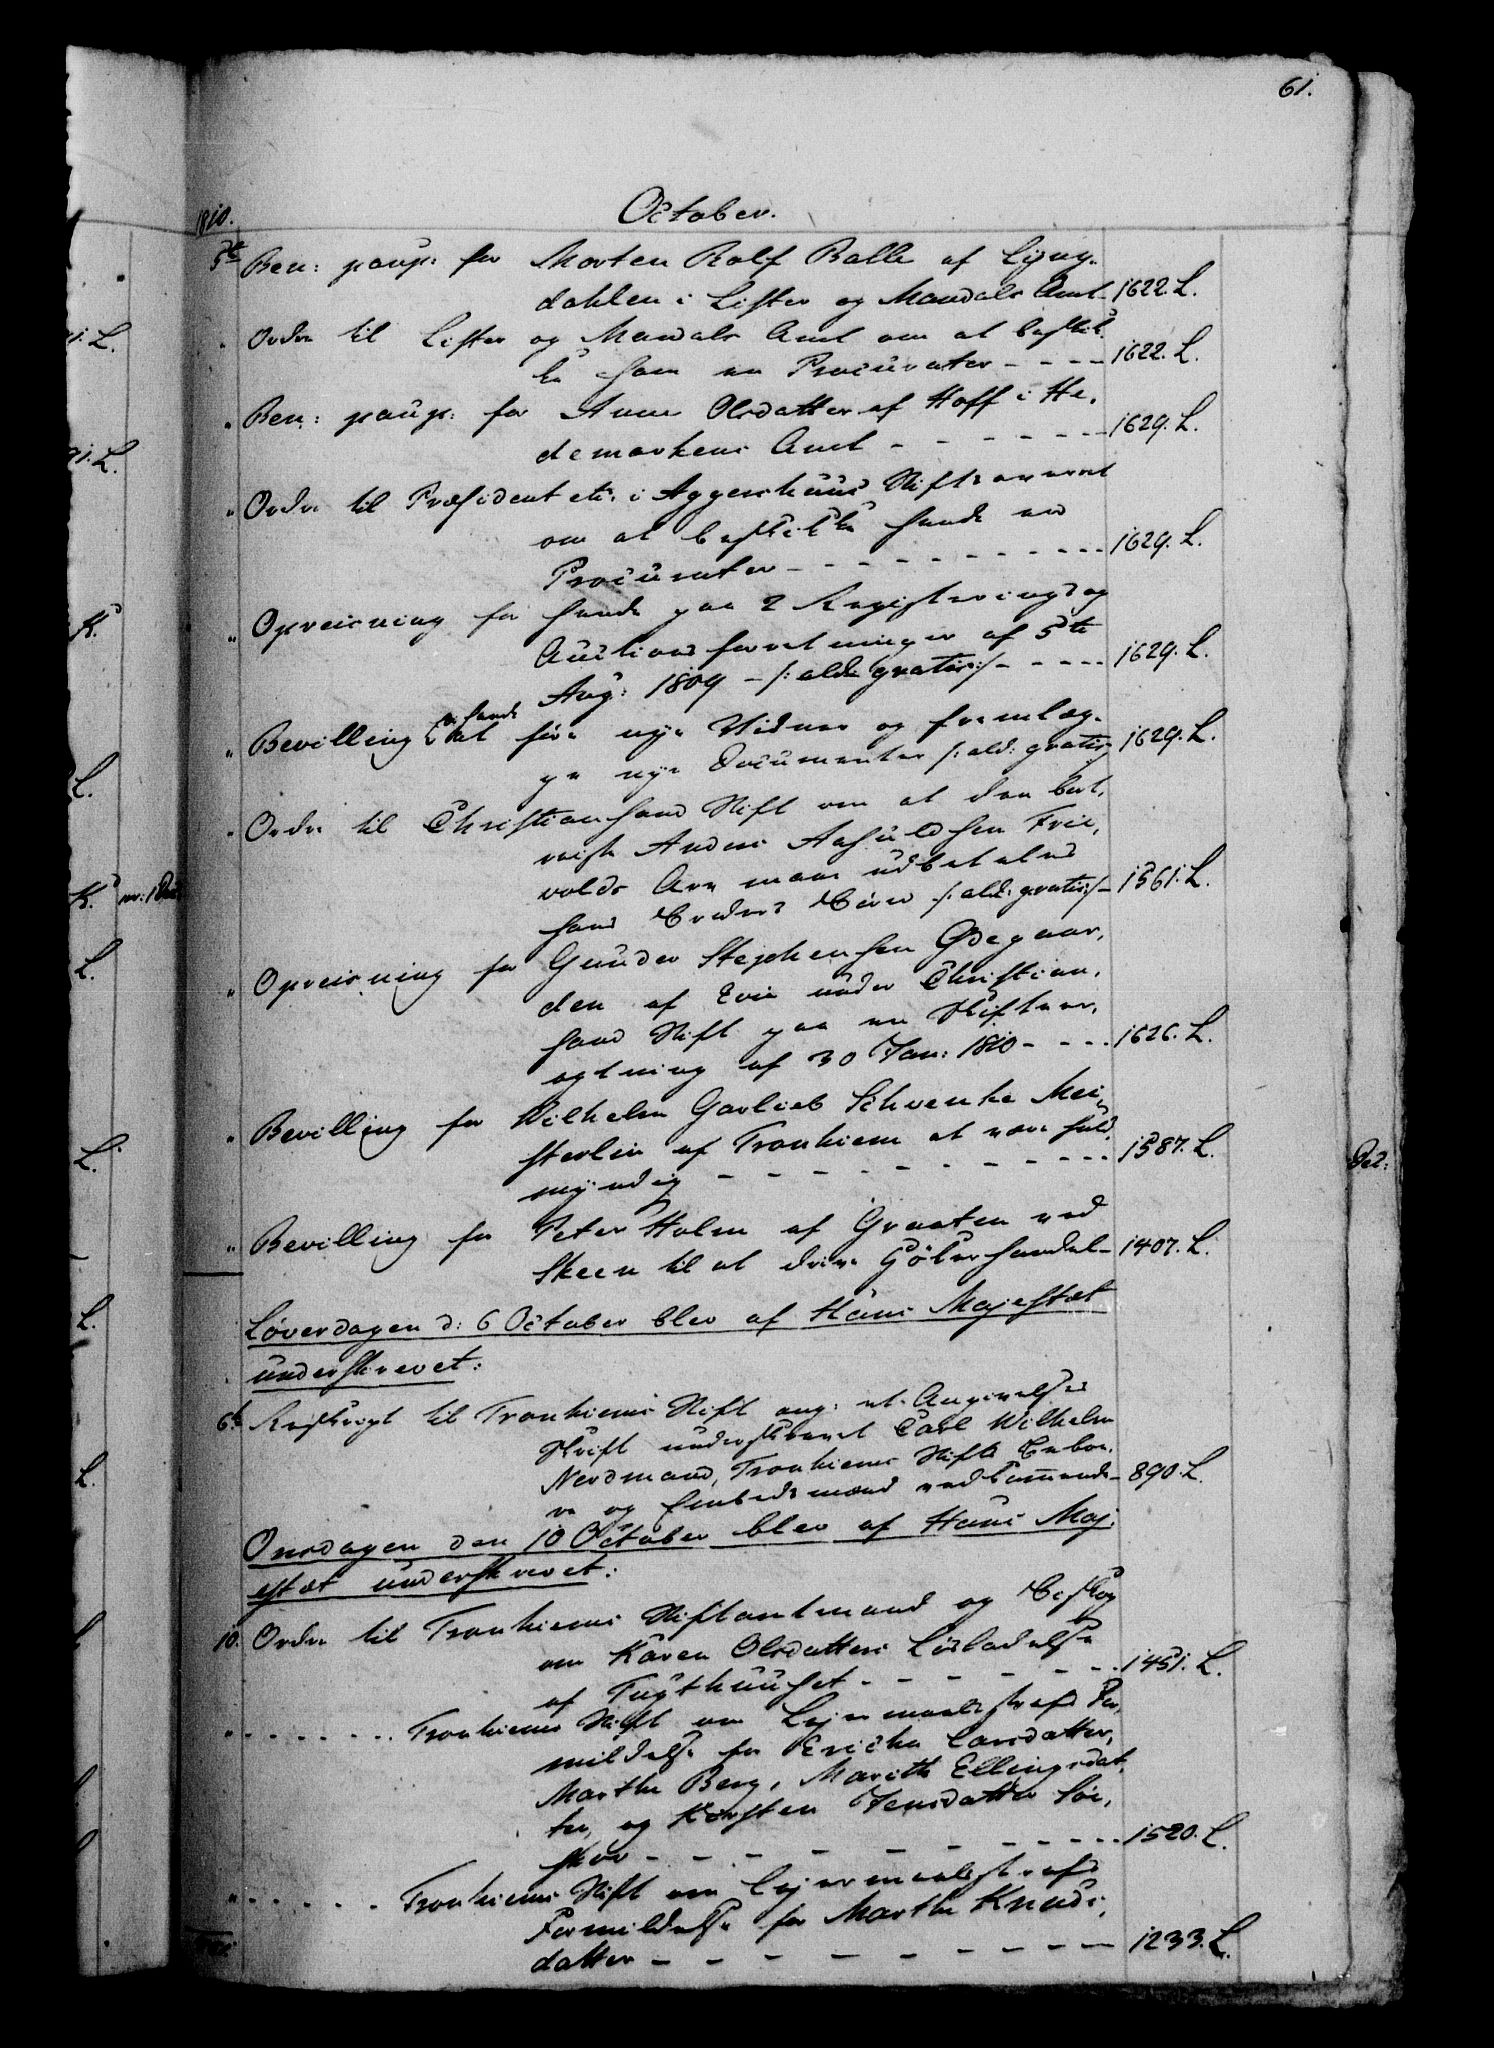 61.
1810. October.
5te Ben: paup: for Morten Rolf Ralle af Lyng-
dahlen i Lister og Mandals Amt 1622. L.
" Ordre til Lister og Mandals Amt om at beskik-
ke ham en Procurator - - - - 1622. L.
" Ben: paup: for Anne Olsdatter af Hoff i He-
demarkens Amt - - - - - - 1629. L.
" Ordre til Præsident etc: i Aggershuus Stiftsoverret
om at beskikke hende en
Procurator - - - - - - - - - - 1629. L.
" Opreisning for hende paa 2 Registerings og
Auctions forretninger af 5te
Aug: 1809 - /: alde gratis :/ - - - - 1629. L.
" Bevilling for hende at føre nye Vidner og fremlæg-
ge nye Documenter /: ald: gratis 1629. L.
" Ordre til Christiansand Stift om at den bort-
reiste Anders Asfuldsen Frii-
volds Arv maae udbetales
hans Broders Børn /: ald: gratis :/ - 1561. L.
" Opreisning for Gunder Stephensen Ødegaar-
den af Evie under Christian-
sand Stift paa en Skiftefor-
retning af 30 Jan: 1810 - - - - 1626. L.
" Bevilling for Wilhelm Garlieb Schvenke Mei-
sterlin af Tronhiem at være fuld-
myndig - - - - - - - - - - - 1587. L.
" Bevilling for Peter Holm af Graaten ved
Skeen til at drive Høkerhandel - 1407. L.
Løverdagen d: 6 October blev af Hans Majestæt
underskrevet:
6te Rescript til Tronhiems Stift ang: et Angivelses
Skrift underskrevet Carl Wilhelm
Nordmand, Tronhiems Stifts Beboe-
re og Embedsmænd vedkommende - 890. L.
Onsdagen den 10 October blev af Hans Maj-
estæt underskrevet:
10. Ordre til Tronhiems Stiftamtmand og Biskop
om Karen Olsdatters Løsladelse
af Tugthuuset - - - - - - - 1451. L.
" - - - - - - - Tronhiems Stift om Leiermaalsstrafs For-
mildelse for Ericka Larsdatter,
Marthe Berg, Marith Ellingsdat-
ter, og Kirsten Jensdatter Søe-
skov - - - - - - - - - - - 1520. L.
" - - - - - - Tronhiems Stift om Leiermaalsstrafs
Formildelse for Marthe Knuds-
datter - - - - - - - - - 1233. L.